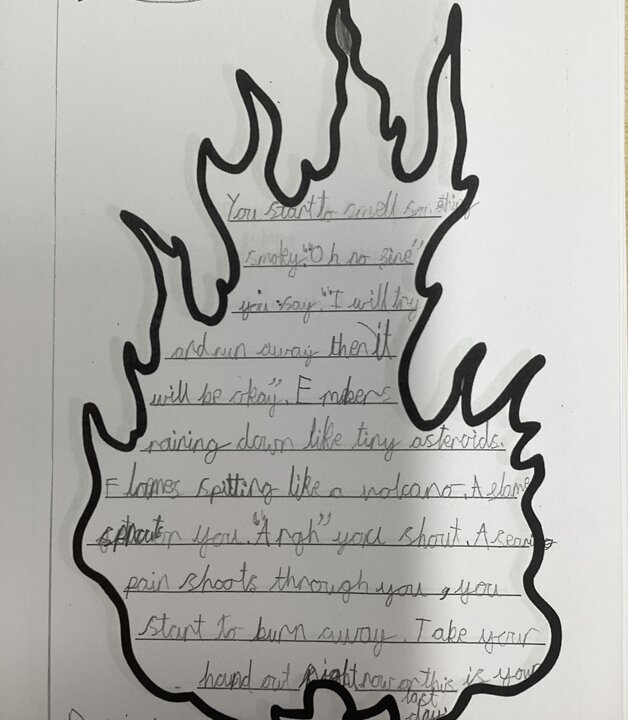 You start to smell something
smoky. "Oh no fire"
you say. "I will try
and run away then it
will be okay". Embers
raining down like tiny asteroids.
Flames spitting like a volcano. A flame
on you. "Argh" you shout. A searing
pain shoots through you, you
start to burn away. Take your
hand out right now or this is your
last
day